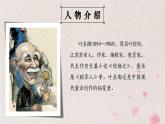 人物介绍
叶圣陶(1894—1988)，作家、
教育家、编辑家。江苏苏州人。家贫，
代表作有长篇小说《倪焕之》，童话集
《稻草人》等。叶圣陶还是中国现代
童话创作的拓荒者。